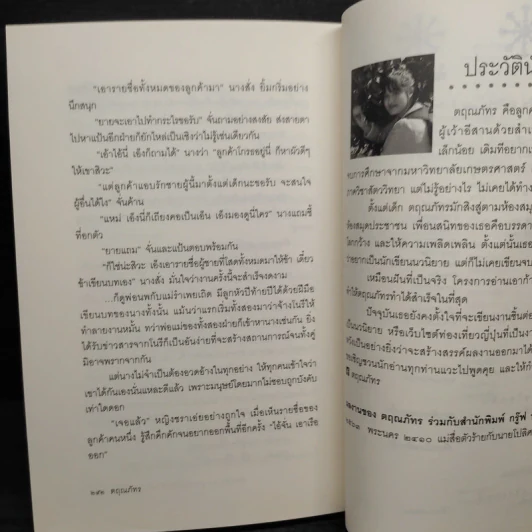 "เอารายชื่อทั้งหมดของลูกค้ามา" นางสั่ง ยิ้มกริ่มอย่าง
นึกสนุก
"ยายจะเอาไปทำกระไรขอรับ" จั่นถามอย่างสงสัย ส่งสายตา
ไปหาแป้นอีกฝ่ายก็ยักไหล่เป็นเชิงว่าไม่รู้เช่นเดียวกัน
"เอ้าไอ้นี่ เอ็งก็ถามได้" นางว่า "ลูกค้าโกรธอยู่นี่ ก็หาผัวดีๆ
ให้เขาสิวะ"
"แต่ลูกค้าแอบรักชายผู้นี้มาตั้งแต่เด็กนะขอรับ จะสนใจ
ผู้อื่นได้ไง" จั่นค้าน
"แหม่ เอ็งนี่ก็เถียงคอเป็นเอ็น เอ็งมองดูนี่ใคร" นางแถมชี้
ที่อกตัว
"ยายแถม" จั่นและแป้นตอบพร้อมกัน
"ก็ใช่น่ะสิวะ เอ็งเอารายชื่อผู้ชายที่โสดทั้งหมดมาให้ข้า เดี๋ยว
ข้าเขียนบทเอง" นางสั่น มั่นใจว่างานครั้งนี้จะสำเร็จงดงาม
...ก็ดูพ่อนพกับแม่รำเพยเถิด มีลูกหัวปีท้ายปีได้ด้วยฝีมือ
เขียนบทของนางทั้งนั้น แม้นว่าแรกเริ่มทั้งสองมาว่าจ้างโนรีให้
ทำลายงานหมั้น ทว่าพ่อแม่ของทั้งสองฝ่ายก็เข้าหานางเช่นกัน ยิ่ง
ได้รับข่าวสารจากโนรีก็เป็นอันง่ายที่จะสร้างสถานการณ์จนทั้งคู่
มิอาจพรากจากกัน
แต่นางไม่จำเป็นต้องอวดอ้างในทุกอย่าง ให้ทุกคนเข้าใจว่า
เขาได้กันเองนั่นแหละดีแล้ว เพราะมนุษย์โดยมากไม่ชอบถูกบังคับ
เท่าใดดอก
"เจอแล้ว" หญิงชราเอ่ยอย่างถูกใจ เมื่อเห็นรายชื่อของ
ลูกค้าคนหนึ่ง รู้สึกคึกคักจนอยากออกพื้นที่อีกครั้ง "ไอ้จั่น เอาเรือ
ออก"
๒๕๒ ตฤณภัทร
ประวัติ
ตฤณภัทร คือลูก
ผู้เว้าอีสานด้วยสำเ
เล็กน้อย เดิมที่อยาก
จบการศึกษาจากมหาวิทยาลัยเกษตรศาสตร์
ภาควิชาสัตววิทยา แต่ไม่รู้อย่างไร ไม่เคยได้ทำง
ตั้งแต่เด็ก ตฤณภัทรมักสิงสู่ตามห้องสมุ
ห้องสมุดประชาชน เพื่อนสนิทของเธอคือบรรดา
โตกว้าง และให้ความเพลิดเพลิน ตั้งแต่นั้นเธอ
ว่าอยากเป็นนักเขียนนวนิยาย แต่ก็ไม่เคยเขียนจบ
เหมือนฝันที่เป็นจริง โครงการอ่านเอาก้า
ทำให้ตฤณภัทรทำได้สำเร็จในที่สุด
ปัจจุบันเธอยังคงตั้งใจที่จะเขียนงานชิ้นต่อ
เป็นนวนิยาย หรือเว็บไซต์ท่องเที่ยวญี่ปุ่นที่เป็นงา
หรือเป็นอย่างยิ่งว่าจะสร้างสรรค์ผลงานออกมาได้
ขอเชิญชวนนักอ่านทุกท่านแวะไปพูดคุย และให้กำ
ตฤณภัทร
ผลงานของ ตฤณภัทร ร่วมกับสำนักพิมพ์ กรู๊ฟ
๒๕๖๑ พระนคร ๒๔๑๐ แม่สื่อตัวร้ายกับนายโปลิศ